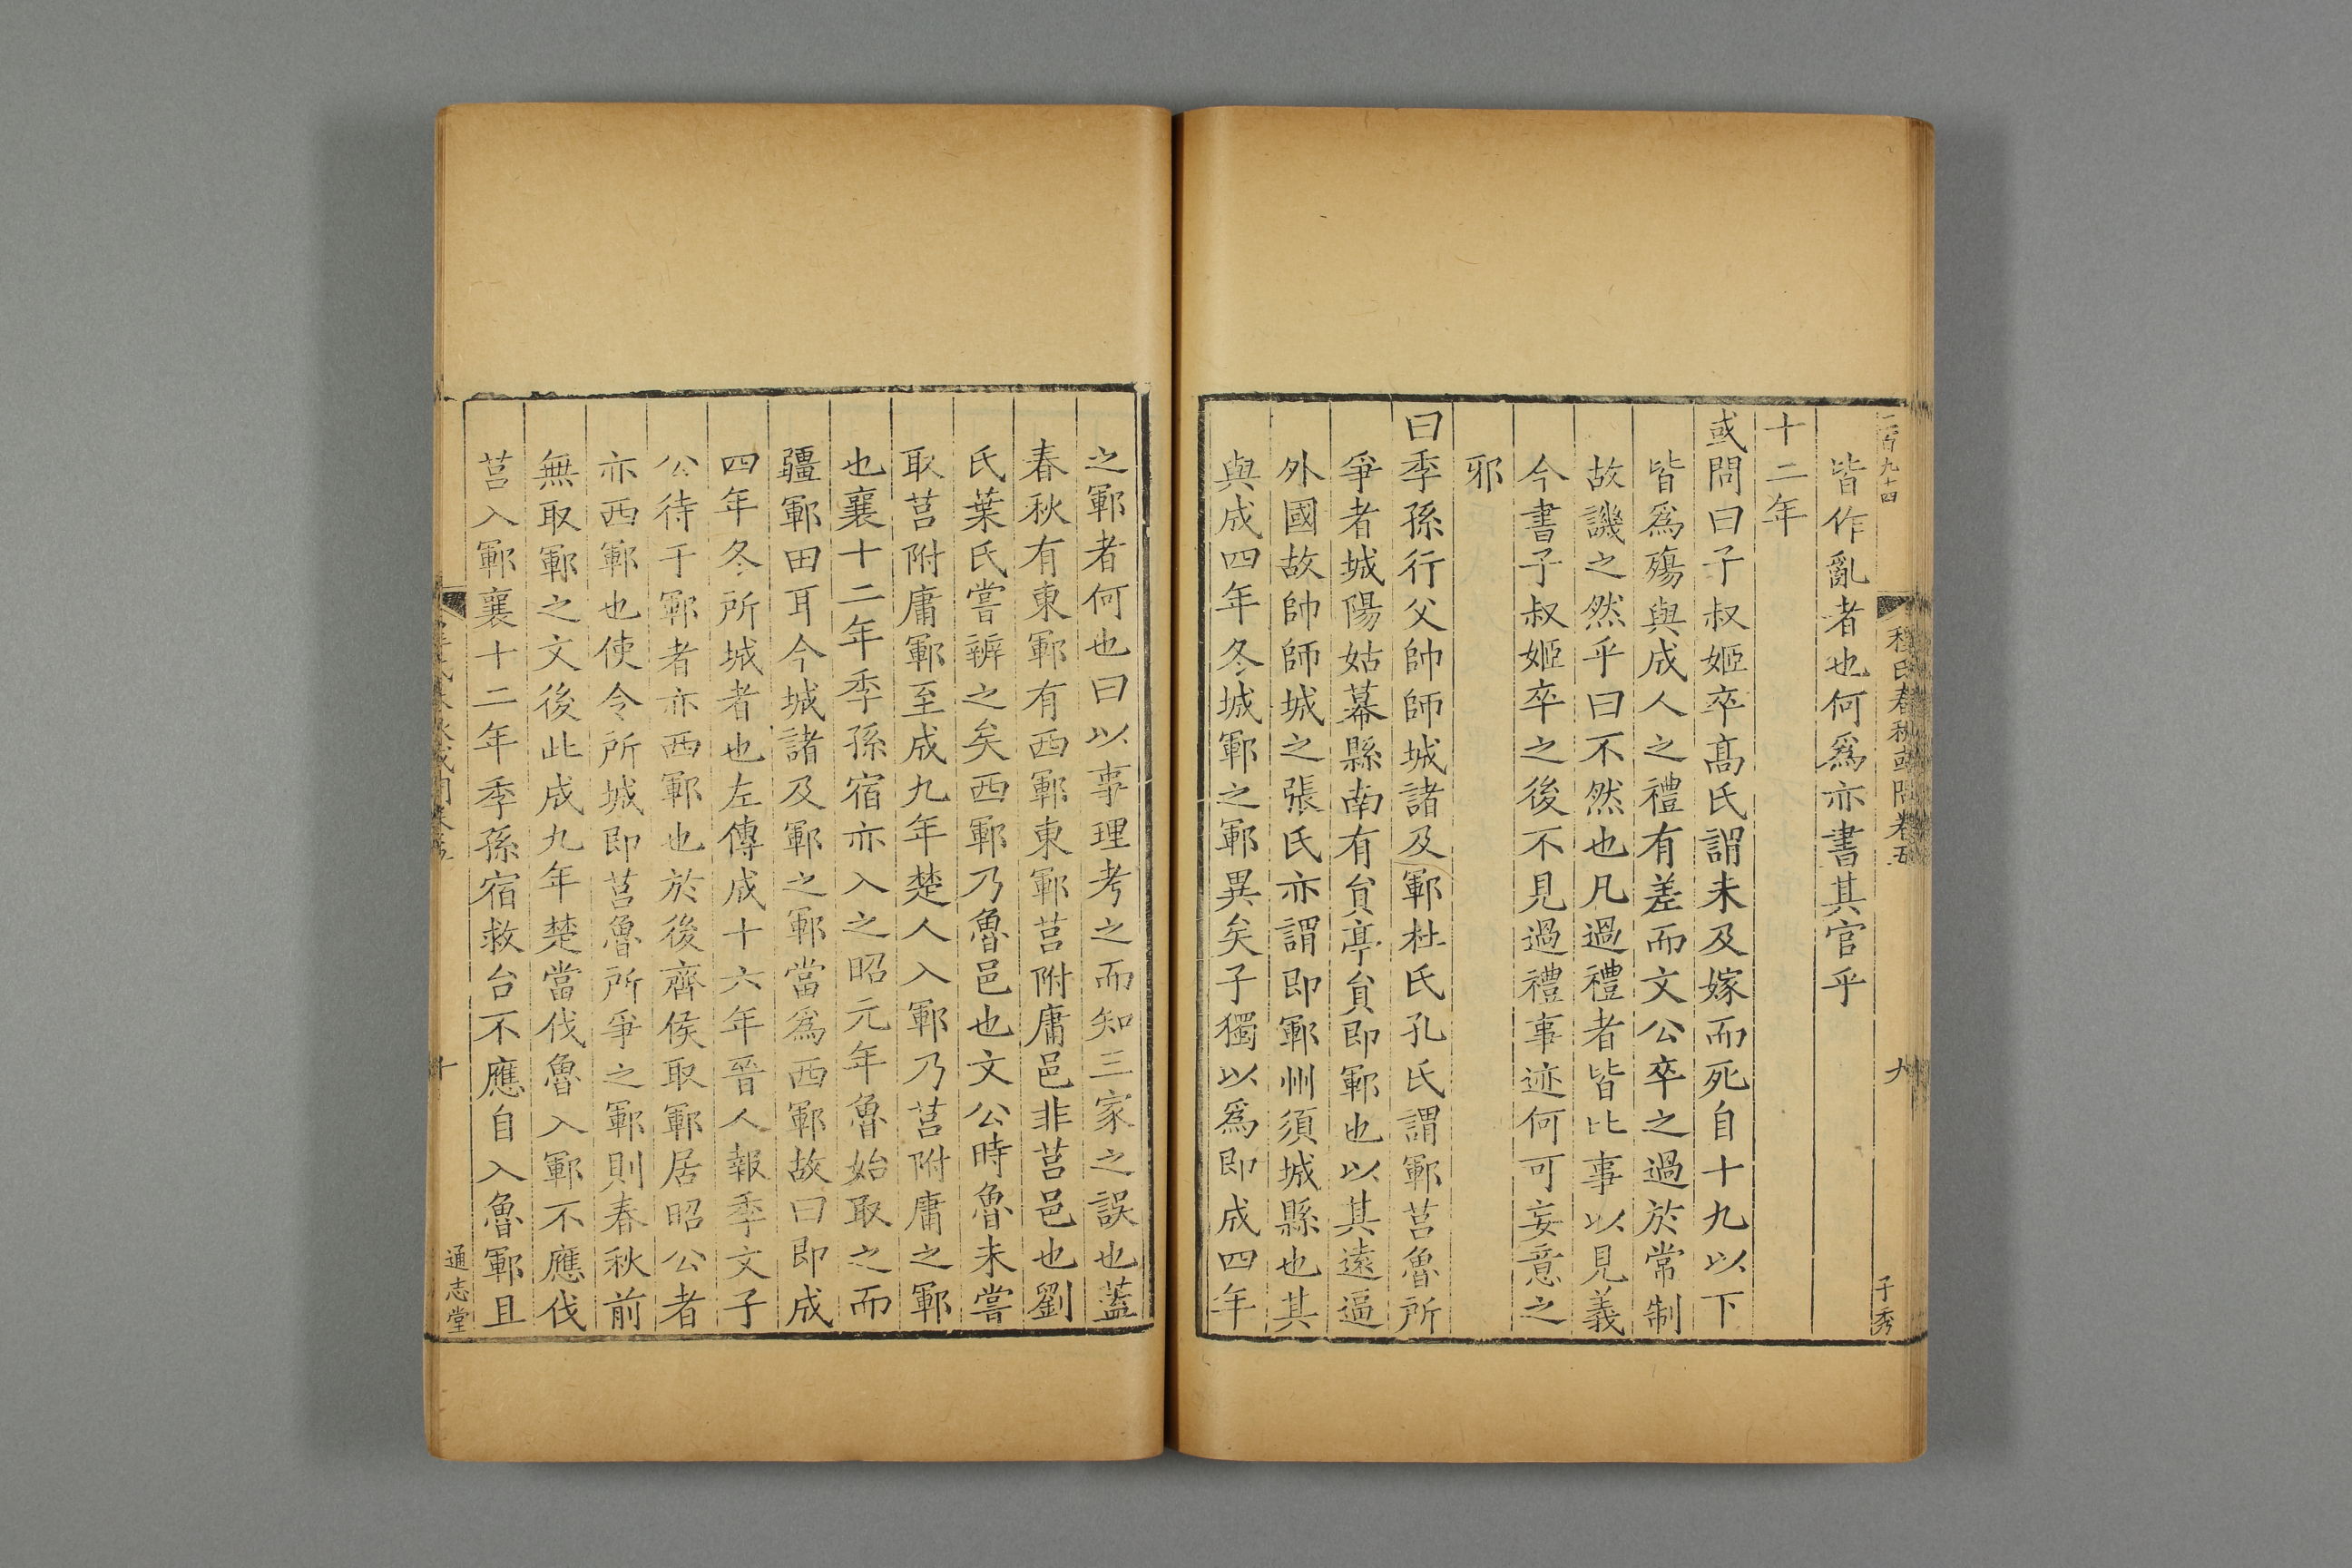 二百九十四
程氏春秋或問卷五
九
子秀
皆作亂者也何爲亦書其官乎
十二年
或問曰子叔姬卒髙氏謂未及嫁而死自十九以下
皆爲殤與成人之禮有差而文公卒之過於常制
故譏之然乎曰不然也凡過禮者皆比事以見義
今書子叔姬卒之後不見過禮事迹何可妄意之
邪
曰季孫行父帥師城諸及鄆杜氏孔氏謂鄆莒魯所
爭者城陽姑幕縣南有貟亭貟即鄆也以其遠逼
外國故帥師城之張氏亦謂即鄆州須城縣也其
與成四年冬城鄆之鄆異矣子獨以爲即成四年
之鄆者何也曰以事理考之而知三家之誤也蓋
春秋有東鄆有西鄆東鄆莒附庸邑非莒邑也劉
氏葉氏嘗辨之矣西鄆乃魯邑也文公時魯未嘗
取莒附庸鄆至成九年楚人入鄆乃莒附庸之鄆
也襄十二年季孫宿亦入之昭元年魯始取之而
疆鄆田耳今城諸及鄆之鄆當爲西鄆故曰即成
四年冬所城者也左傳成十六年晉人報季文子
公待于鄆者亦西鄆也於後齊侯取鄆居昭公者
亦西鄆也使令所城即莒魯所爭之鄆則春秋前
無取鄆之文後此成九年楚當伐魯入鄆不應伐
莒入鄆襄十二年季孫宿救台不應自入魯鄆且
十
通志堂